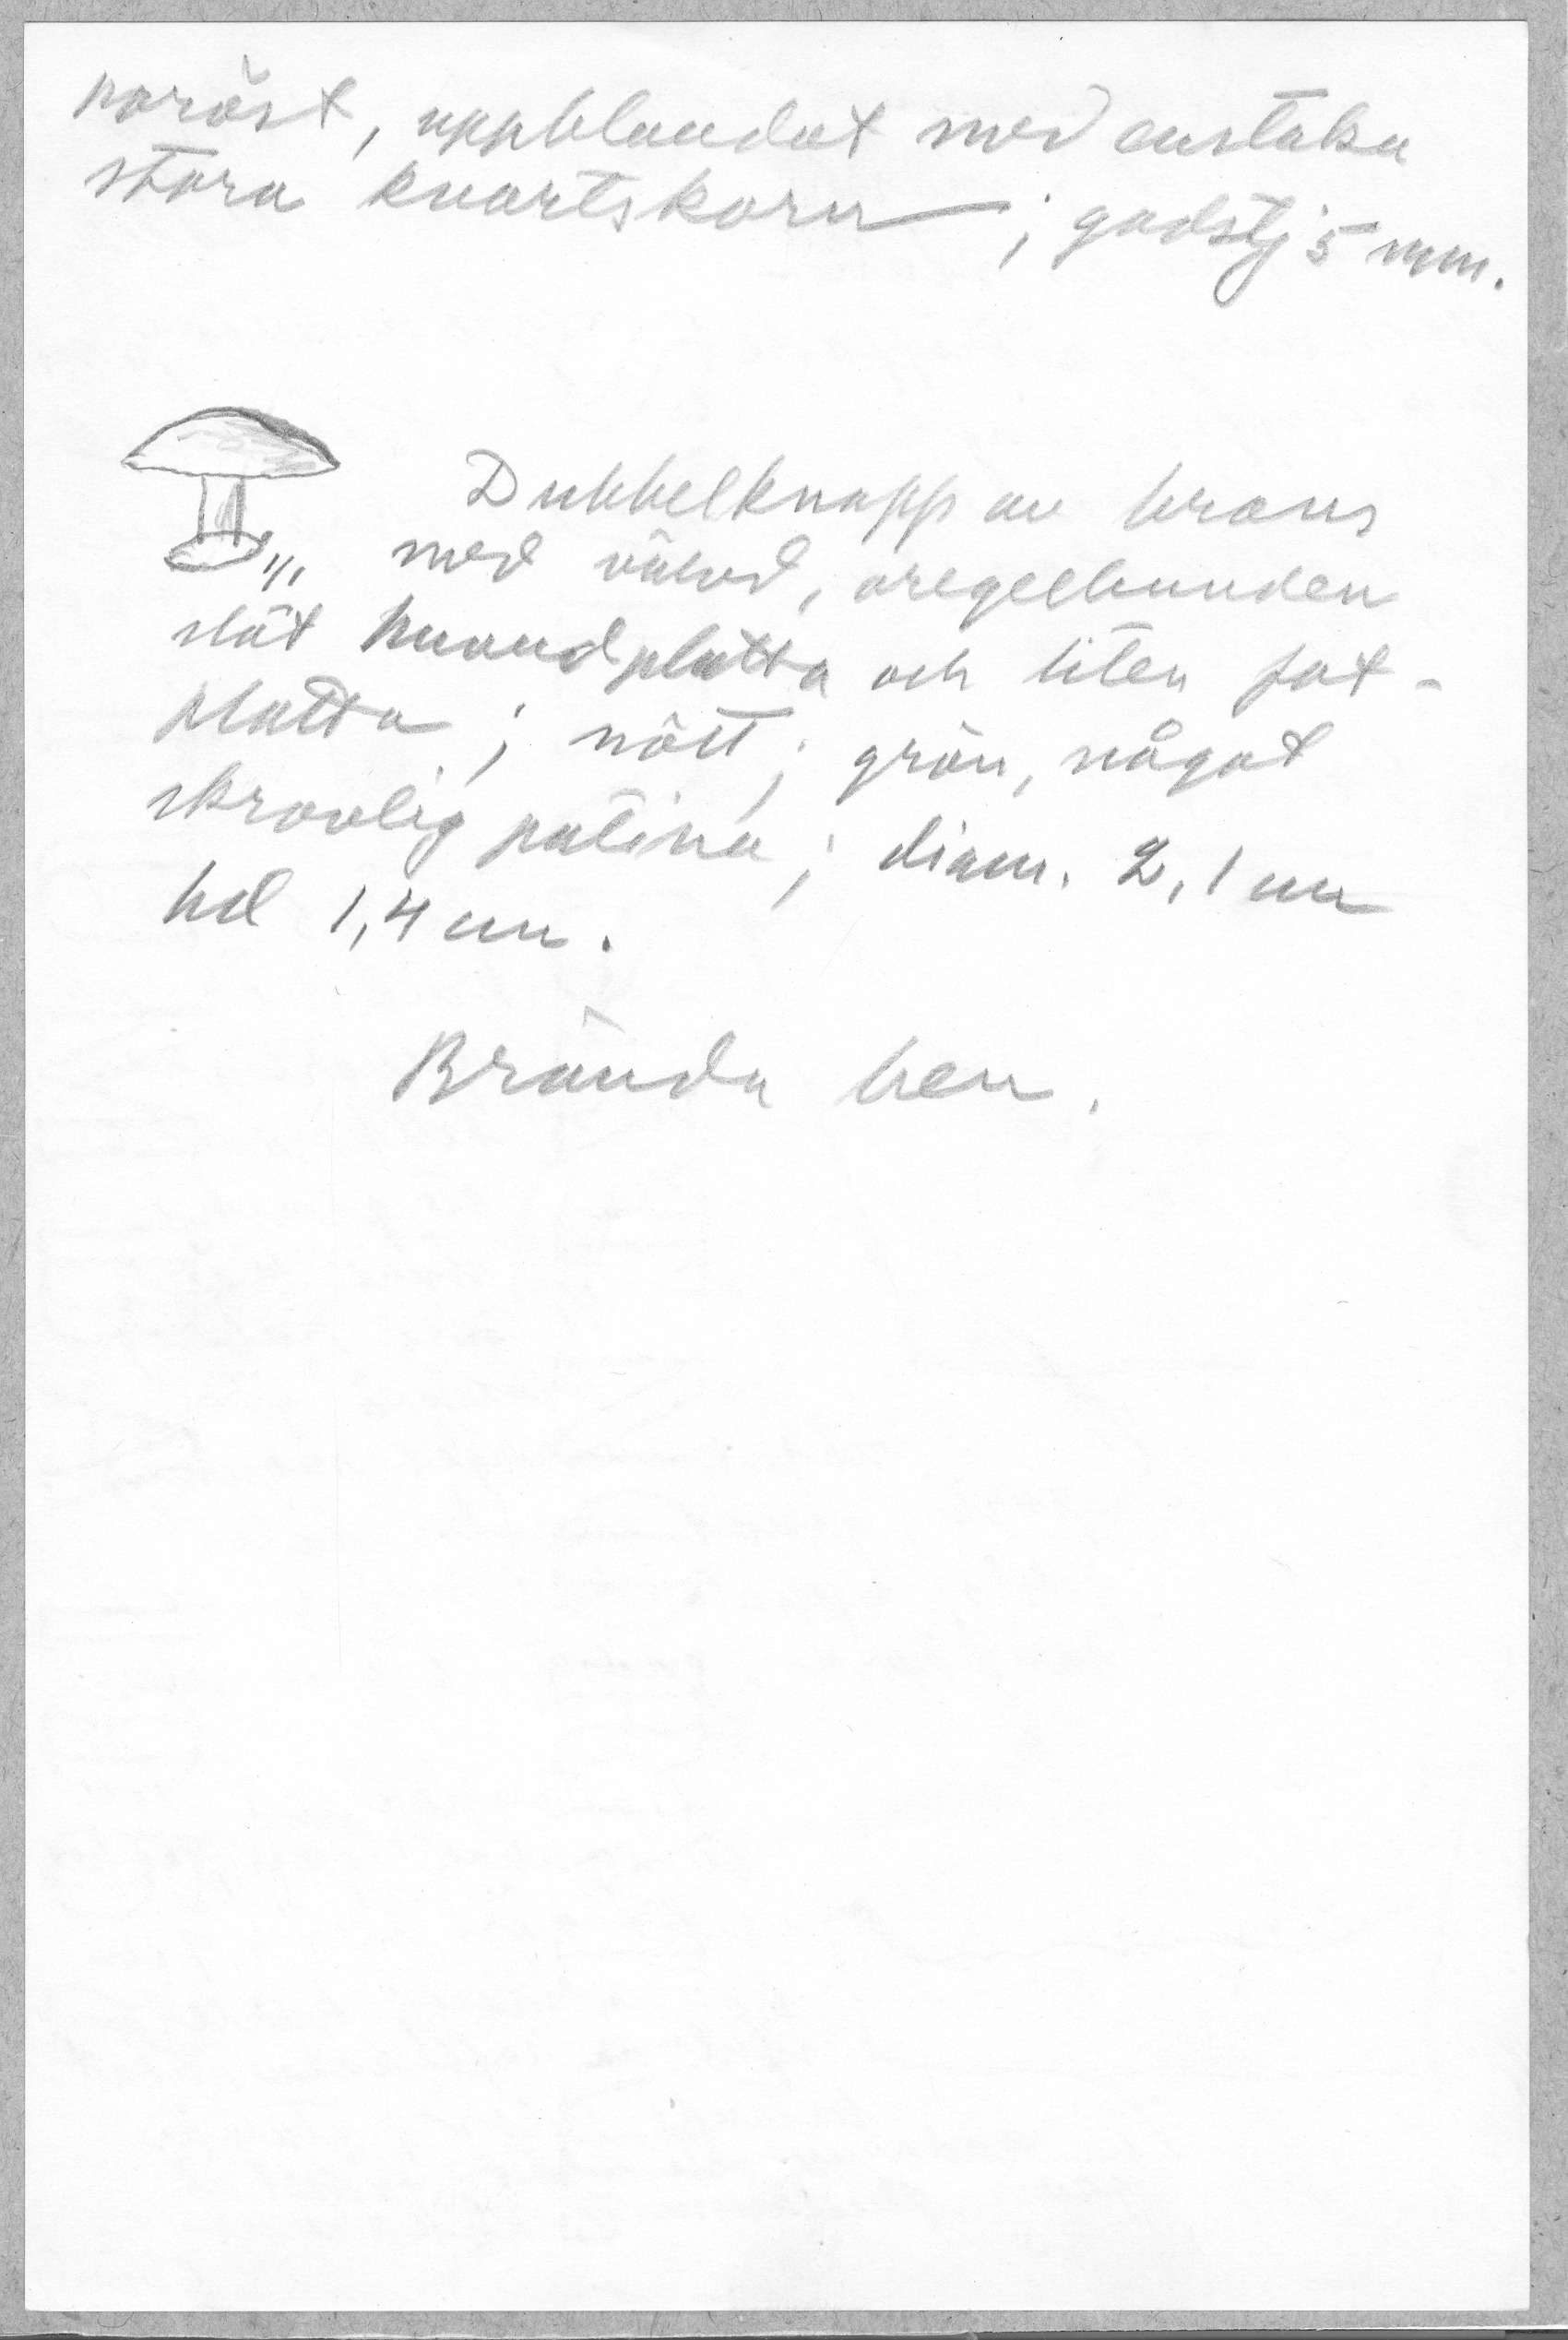 poröst, uppblandat med enstaka
stora kvartskorn; godstj 5 mm.
Dubbelknapp av brons
1/1 med välvd, oregelbunden
slät huvudplatta och liten fot-
platta; nött; grön, något
skrovlig patina; diam. 2,1 cm
höl 1,4 cm.
Brända ben.